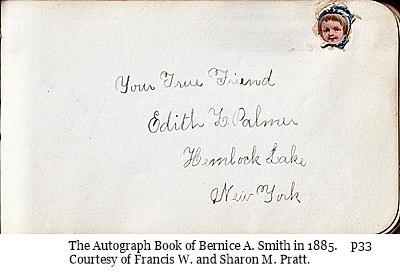 Your True Friend
Edith L. Palmer
Hemlock Lake
New York
The Autograph Book of Bernice A. Smith in 1885. p33
Courtesy of Francis W. and Sharon M. Pratt.